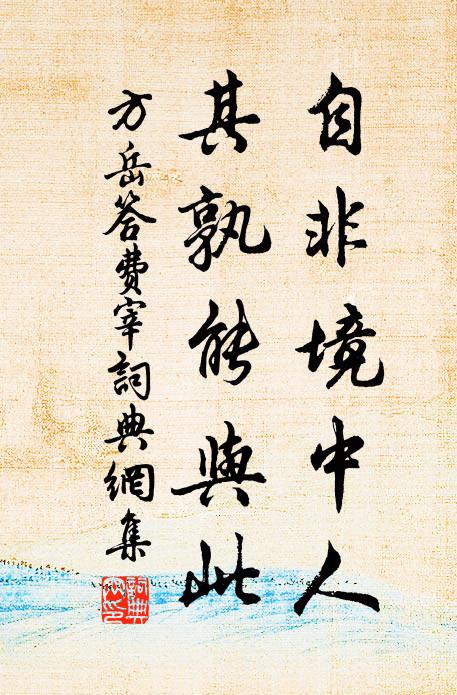 自非境中人
其孰能與此
方岳答費宰詞典網集